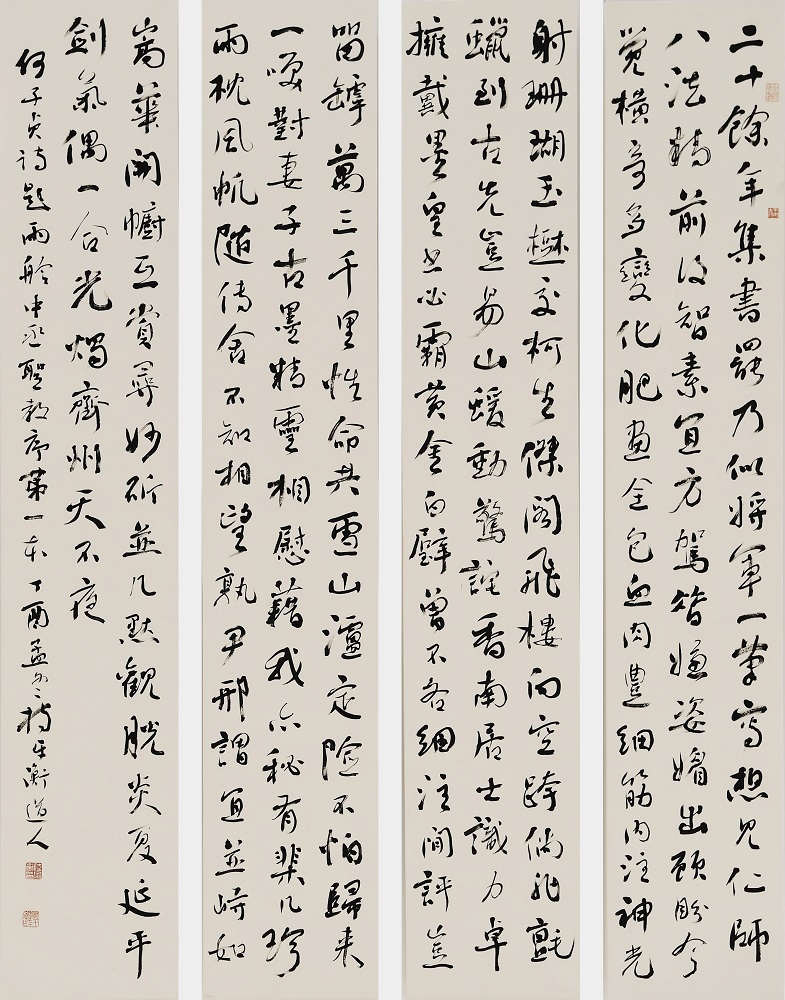 二十餘年集書罷乃似將軍一筆寫想見仁師
八法精前後智素宜方駕皆嫌姿媚出顧盼今
覺橫奇多變化肥畫全包血肉豊細筋內注神光
射珊瑚玉樹交柯生傑閣飛樓向空跨倘非氈
蠟到古先豈易山動驚詫香南居士識力卓
擁戴墨皇出必霸黃金白璧曾不吝細注閒評豈
留罅萬三千里性命共雪山瀘定險不怕歸来
一噱對妻子古墨精靈相慰藉我亦秘有棐几珍
雨枕風帆隨傳舍不知相望孰尹邢謂宜並峙如
嵩華開幮互賞尋妙斫並几默觀脫炎夏延平
劍氣偶一合光燭齊州天不夜
何子貞詩題雨舲中丞聖教序第一本丁酉孟冬衡道人